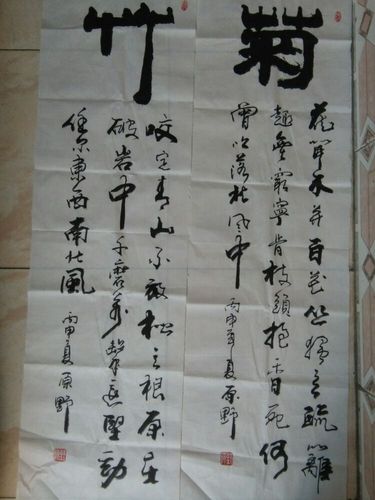 菊
花開不并百花丛独立疏籬
趣無窮寧肯枝頭抱香死何
曾吹落北風中 丙申年夏 原野
竹
咬定青山不放松立根原在
破岩中千磨萬擊還堅勁
任尔東西南北風 丙申夏 原野